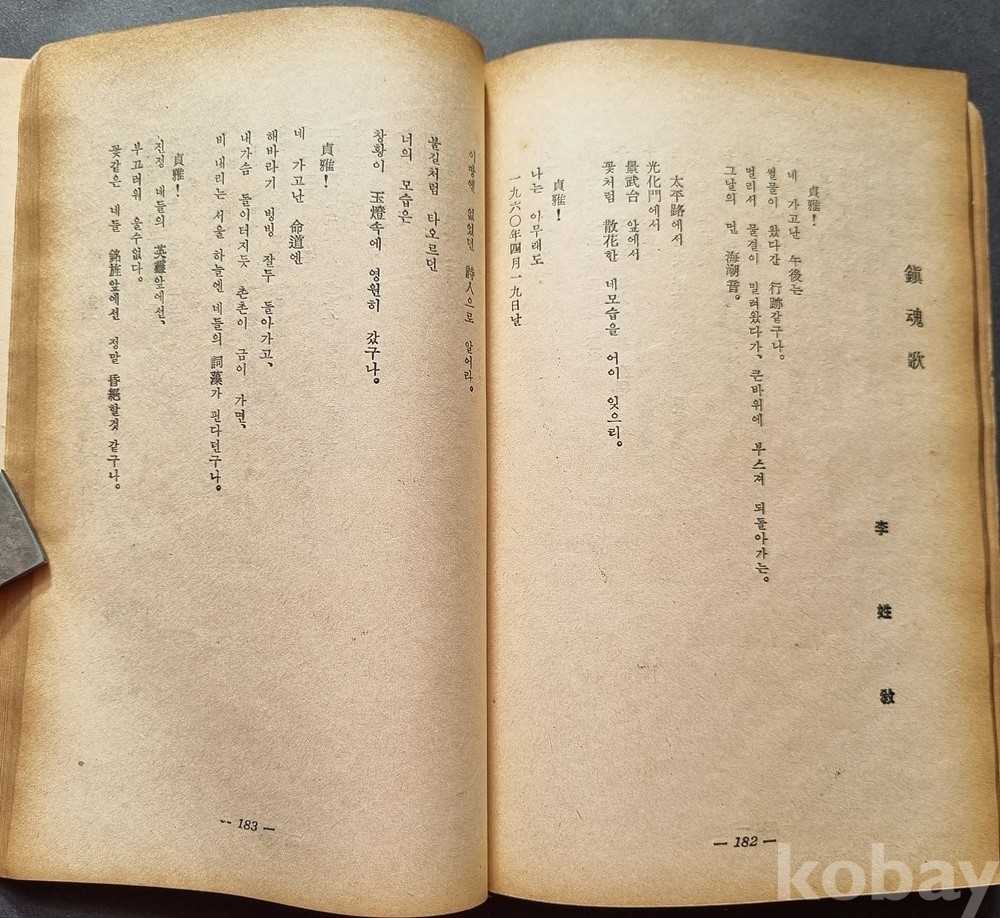 鎭魂歌
李姓敎
貞雅!
네 가고난 午後는
썰물이 왔다간 行跡같구나。
멀리서 물결이 밀려왔다가、큰바위에 부스져 되돌아가는。
그날의 먼 海潮音。
太平路에서
光化門에서
景武台 앞에서
꽃처럼 散花한 네모습을 어이 잊으리。
貞雅!
나는 아무래도
一九六〇年四月一九日날
이땅엔 없었던 詩人으로 알어라。
불길처럼 타오르던
너의 모습은
창황이 玉燈속에 영원히 갔구나。
貞雅!
네 가고난 命道엔
해바라기 빙빙 잘두 돌아가고、
내가슴 돌이터지듯 촌촌이 금이 가면、
비 내리는 서울 하늘엔 네들의 詞藻가 핀다던구나。
貞雅!
진정 네들의 英靈앞에선、
부끄러워 울수없다。
꽃같은 네들 銘旌앞에선 정말 昏絕할것 같구나。
— 182 —
-- 183 —
kobay